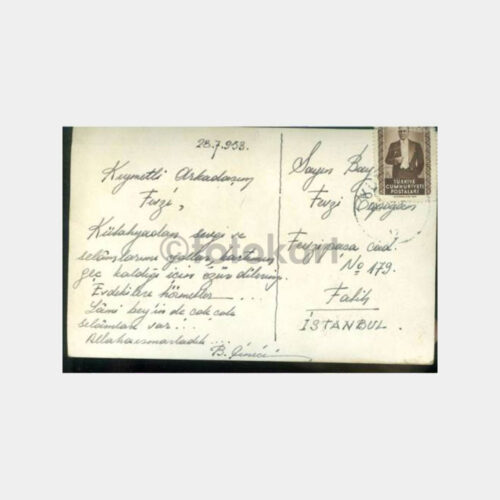 28.7.953.
Kıymetli Arkadaşım
Fevzi,
Kütahyadan sevgi ve
selâmlarımı yollar, kartımın
geç kaldığı için özür dilerim.
Evdekilere hürmetler . . .
Sâmi bey'in de çok çok
selâmları var . . .
Allahaısmarladık . . . .
B.
Sayın Bay
Fevzi
Fevzipaşa cad.
No 179.
Fatih
İSTANBUL.
TÜRKİYE
CUMHURİYETİ
POSTALARI
©fotokart